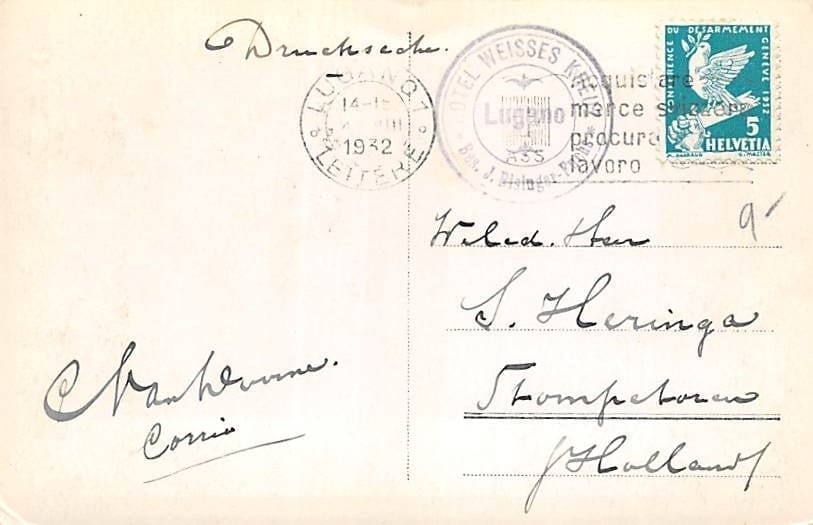 Drucksache.
LUGANO 1
14-15
VIII
1932
LETTERE
HOTEL WEISSES KREUZ
Lugano
Bes. J. Disinger
acquistare
merce svizzera
procura
lavoro
CONFÉRENCE DU DÉSARMEMENT GENÈVE 1932
5
HELVETIA
9
Weled. Heer
S. Heringa
Stompetoren
(Holland)
Corrie